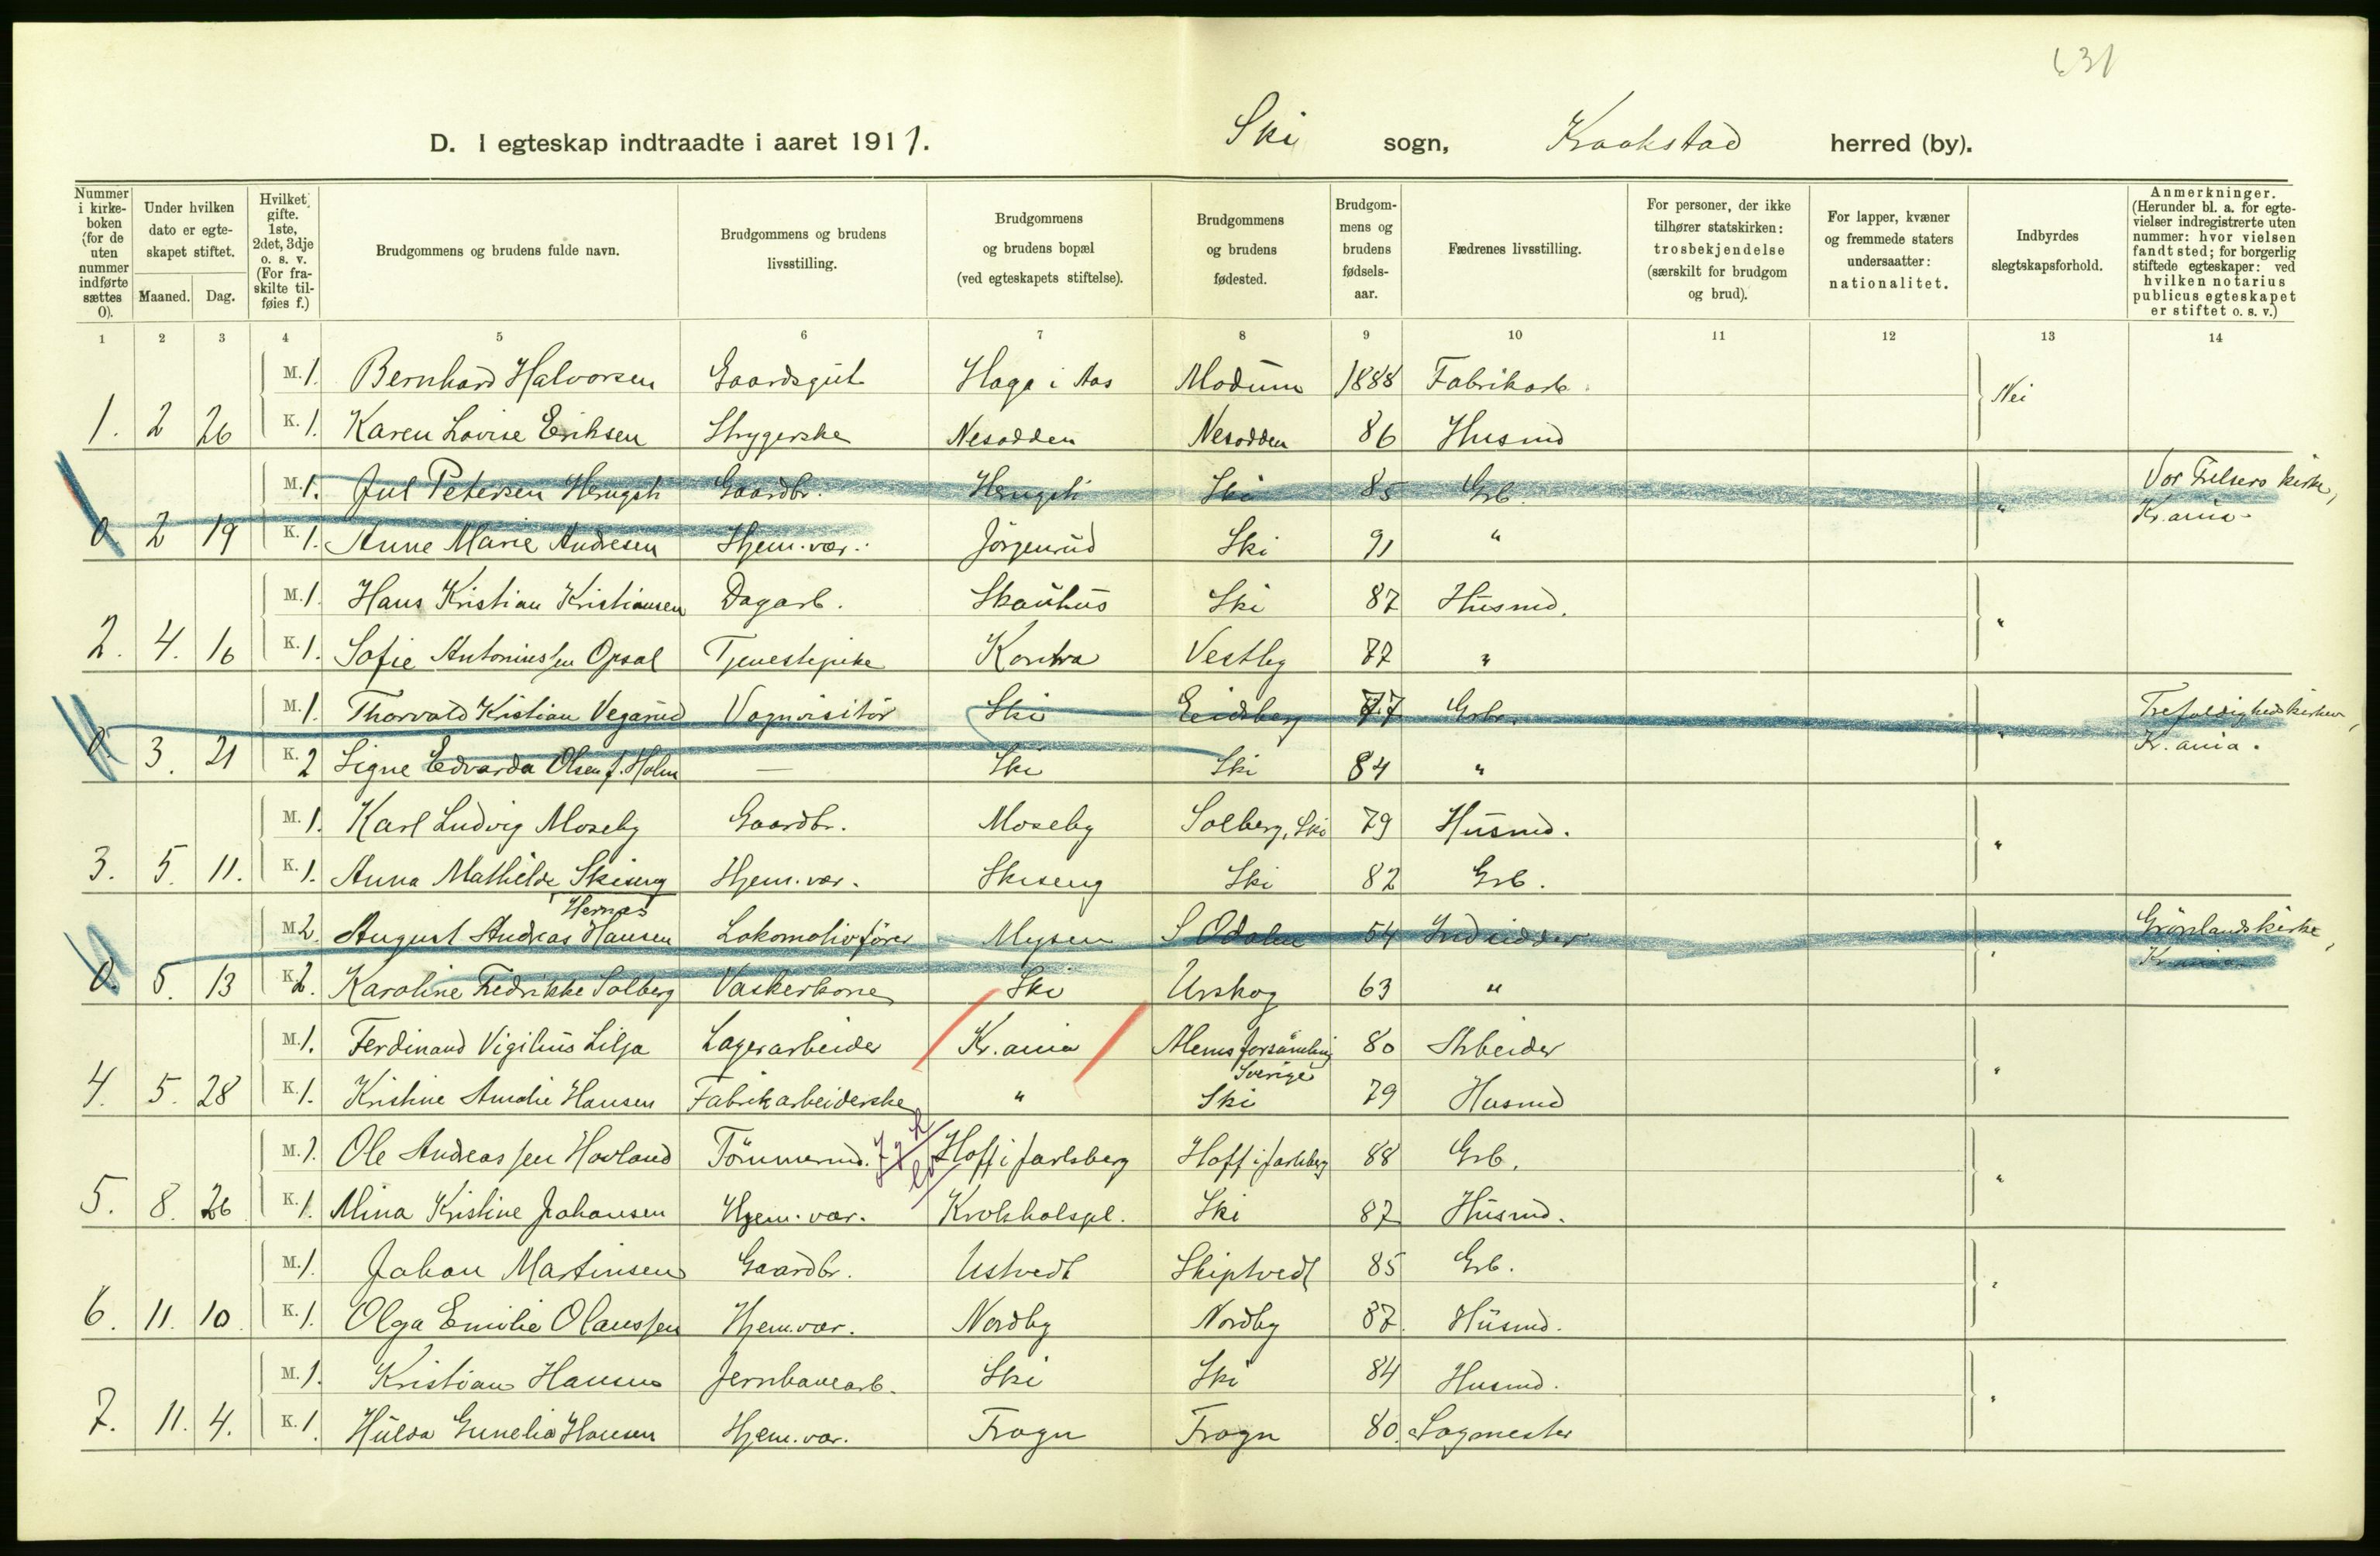 631
D. I egteskap indtraadte i aaret 1911. Ski sogn, Kraakstad herred (by).
Nummer i kirke-boken (for de uten nummer indførte sættes 0).
Under hvilken dato er egte-skapet stiftet.
Maaned. Dag.
Hvilket gifte. 1ste, 2det, 3dje o. s. v. (For fra-skilte til-føies f.)
Brudgommens og brudens fulde navn.
Brudgommens og brudens livsstilling.
Brudgommens og brudens bopæl (ved egteskapets stiftelse).
Brudgommens og brudens fødested.
Brudgom-mens og brudens fødsels-aar.
Fædrenes livsstilling.
For personer, der ikke tilhører statskirken: trosbekjendelse (særskilt for brudgom og brud).
For lapper, kvæner og fremmede staters undersaatter: nationalitet.
Indbyrdes slegtskapsforhold.
Anmerkninger. (Herunder bl. a. for egte-vielser indregistrerte uten nummer: hvor vielsen fandt sted; for borgerlig stiftede egteskaper: ved hvilken notarius publicus egteskapet er stiftet o. s. v.)
1 2 3 4 5 6 7 8 9 10 11 12 13 14
M. 1. Bernhard Halvorsen Gaardsgut Haga i Aas Modum 1888 Fabrikarb. Nei
1. 2 26 K. 1. Karen Lovise Eriksen Strygerske Nesodden Nesodden 86 Husmd
M. 1. Jul Petersen Gaardbr. Ski 85 Grb. " Vor Frelsers kirke,
0 2 19 K. 1. Anne Marie Andresen Hjem. vær. Jörgenrud Ski 91 " Kr.ania.
M. 1. Hans Kristian Kristiansen Dagarb. Skauhus Ski 87 Husmd. "
2. 4. 16 K. 1. Sofie Antoniussen Opsal Tjenestepike Kontra Vestby 77 "
M. 1. Thorvald Kristian Vegarud Vognvisitör Ski Eidsberg 77 Grbr. " Trefoldighedskirken,
0. 3. 21 K. 2 Signe Edvarda Olsen f. Holm — Ski Ski 84 " Kr. ania.
M. 1. Karl Ludvig Moseby Gaardbr. Moseby Solberg, Ski 79 Husmd. "
3. 5. 11. K. 1. Anna Mathilde Skiseng Hjem. vær. Skiseng Ski 82 Grb.
Hernæs
M. 2. August Andreas Hansen Lokomotivförer Mysen S Odalen 54 " Grönlandskirke,
0. 5. 13 K. 2. Karoline Fredrikke Solberg Vaskerkone Ski Urskog 63 " Kr.ania.
M. 1. Ferdinand Vigilius Lilja Lagerarbeider Kr. ania forsämling 80 Arbeider "
Sverige
4. 5. 28 K. 1. Kristine Amalie Hansen Fabrikarbeiderske " Ski 79 Husmd
M. 1. Ole Andreassen Hovland Tömmermd. Hoff i Jarlsberg Hoff i Jarlsberg 88 Grb. "
5. 8. 26 K. 1. Mina Kristine Johansen Hjem. vær. Krokholspl. Ski 87 Husmd.
M. 1. Johan Martinsen Gaardbr. Ustvedt Skiptvedt 85 Grb. "
6. 11. 10. K. 1. Olga Emilie Olaussen Hjem. vær. Nordby Nordby 87. Husmd.
M. 1. Kristian Hansen Jernbanearb. Ski Ski 84 Husmd. "
7. 11. 4. K. 1. Hulda Gunelia Hansen Hjem. vær. Frogn Frogn 80. Sagmester